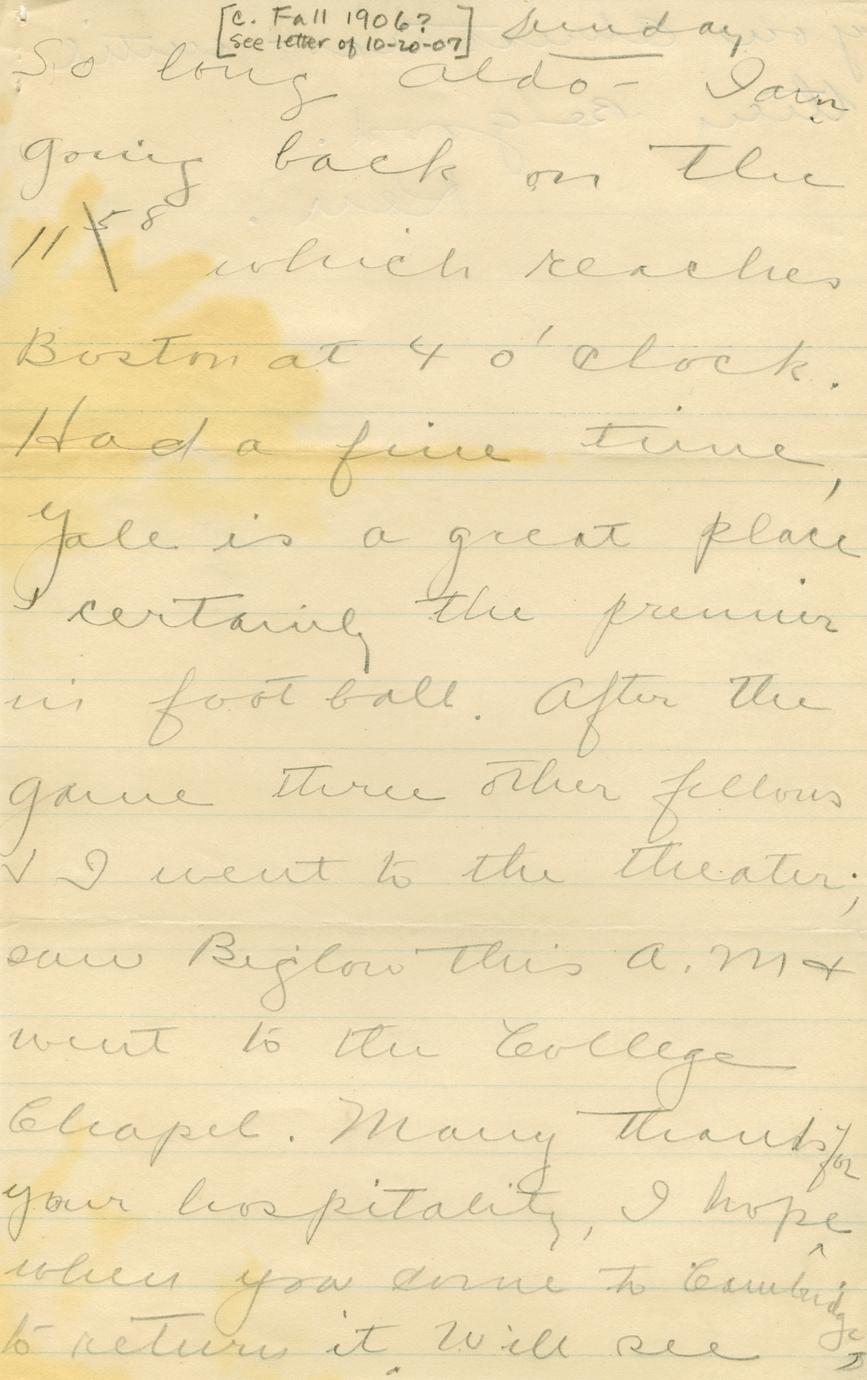 [c. Fall 1906?
see letter of 10-20-07]
Sunday
So long Aldo - I am
going back on the
11 58 which reaches
Boston at 4 o'clock.
Had a fine time,
Yale is a great place
& certainly the premier
in foot ball. After the
game three other fellows
& I went to the theater;
saw Biglow this A.M &
went to the College
Chapel. Many thanks for
your hospitality, I hope
when you come to Cambridge,
to return it. Will see